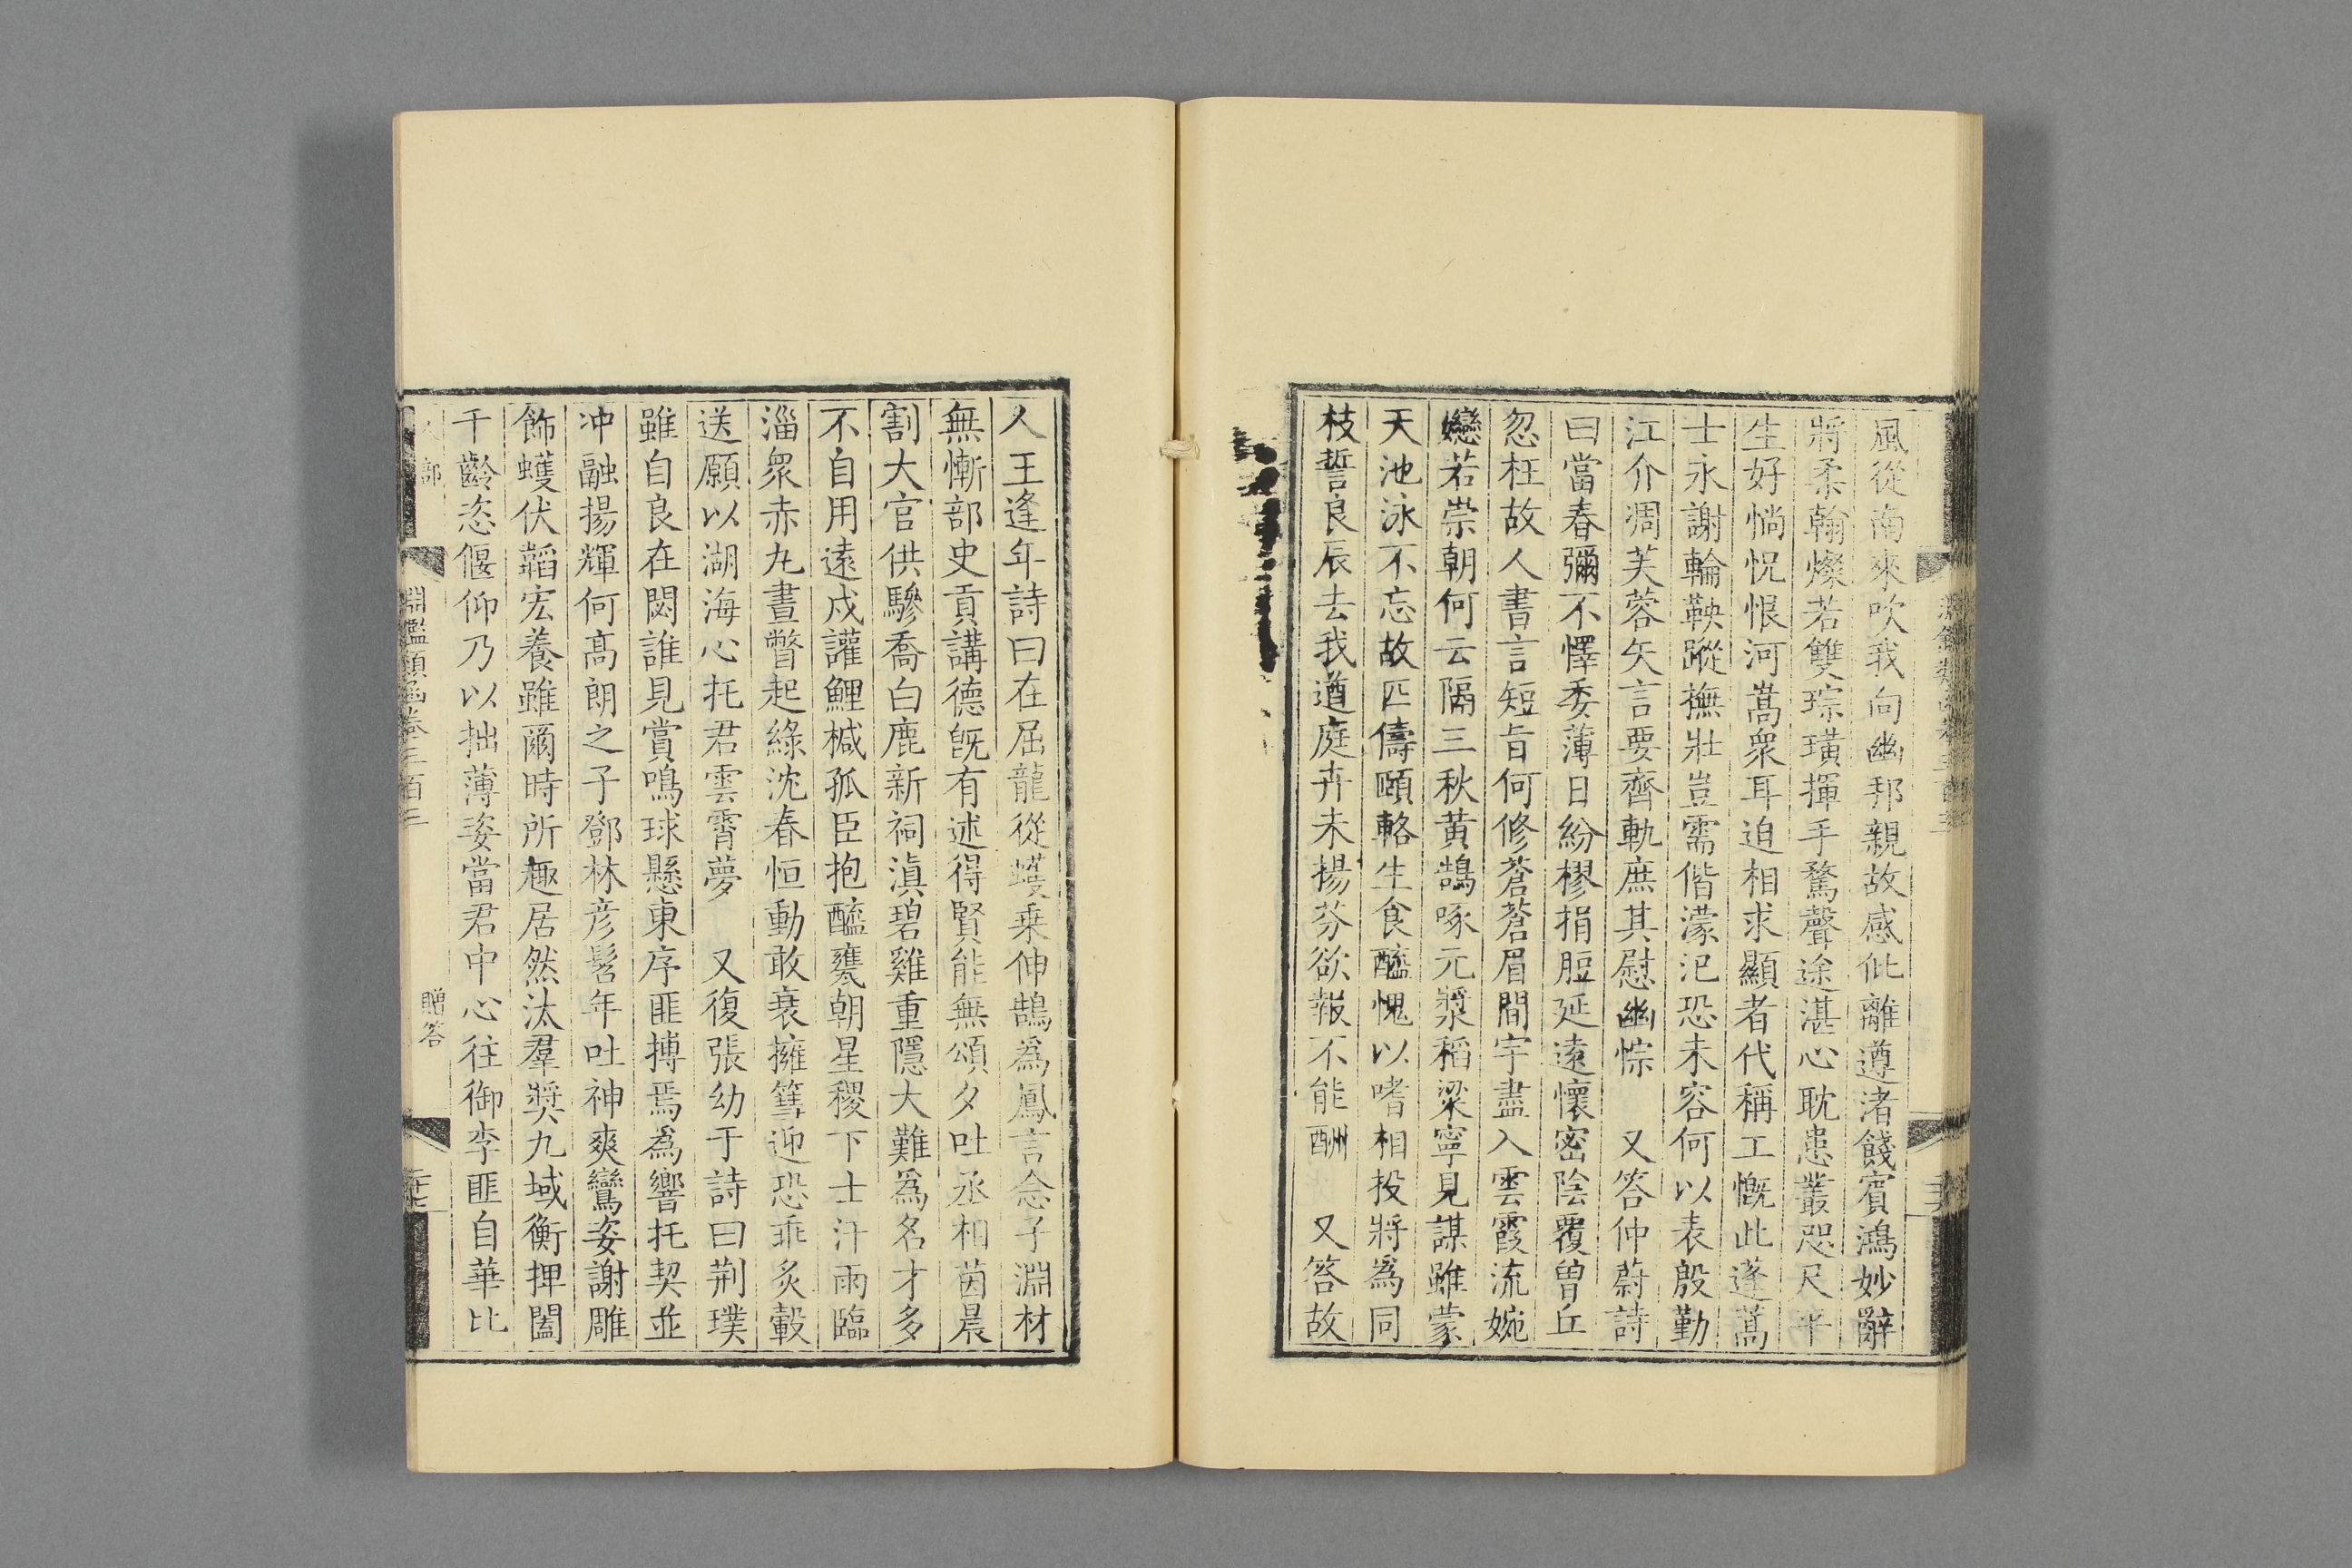 風從南來吹我向幽邦親故感仳離遵渚餞賓鴻妙辭
將柔翰燦若雙琮璜揮手騖聲途湛心耽患叢咫尺平
生好惝怳恨河嵩衆耳迫相求顯者代稱工慨此蓬蒿
士永謝輪鞅蹤撫壯豈需偕濛汜恐未容何以表殷勤
江介凋芙蓉矢言要齊軌庶其慰幽悰 又答仲蔚詩
曰當春彌不懌委薄日紛樛捐脰延遠懷密陰覆曾丘
忽枉故人書言短旨何修蒼蒼眉間宇盡入雲霞流婉
孌若崇朝何云隔三秋黃鵠啄元漿稻粱寧見謀雖蒙
天池泳不忘故匹儔頤輅生食醯愧以嗜相投將為同
枝誓良辰去我遒庭卉未揚芬欲報不能酬 又答故
人王逢年詩曰在屈龍從蠖乘伸鵠為鳳言念子淵材
無慚部史貢講德旣有述得賢能無頌夕吐丞相茵晨
割大官供驂喬白鹿新祠滇碧雞重隱大難為名才多
不自用遠戍讙鯉槭孤臣抱醯甕朝星稷下士汗雨臨
淄衆赤丸晝瞥起綠沈春恒動敢衰擁篲迎恐乖炙轂
送願以湖海心托君雲霄夢 又復張幼于詩曰荆璞
雖自良在閟誰見賞鳴球懸東序匪搏焉為響托契並
冲融揚輝何高朗之子鄧林彦髫年吐神爽鸞姿謝雕
飾蠖伏韜宏養雖爾時所趣居然汰羣獎九域衡捭闔
千齡恣偃仰乃以拙薄姿當君中心往御李匪自華比
人部 淵鑑類函卷三百三 贈答